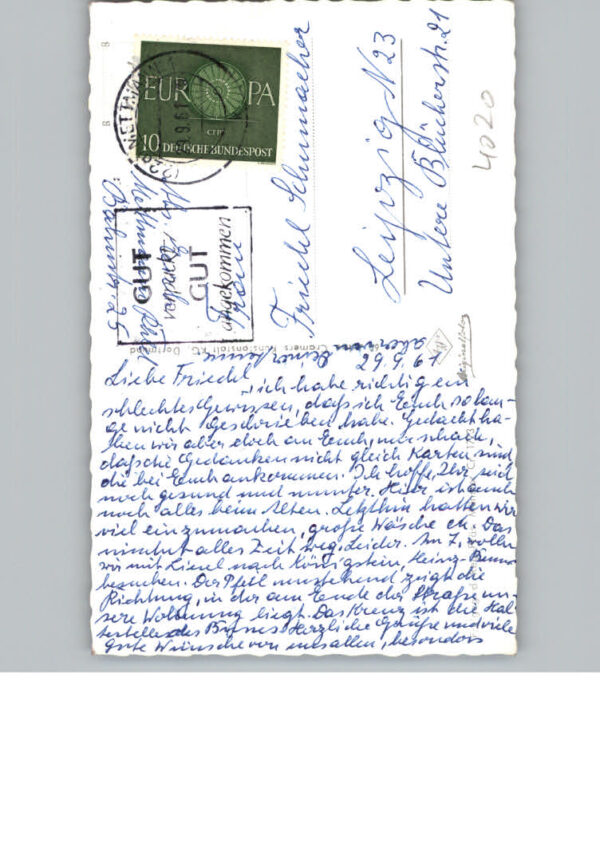 EUROPA
CEPT
10 DEUTSCHE BUNDESPOST
METTMANN
9.61
GUT
GUT
angekommen
Mettmann Rhld
Bahnstr. 25
Frau
Friedel Schumacher
Leipzig N 23
Untere Blücherstr. 21
4020
Cramers Kunstanstalt KG. Dortmund
29.9.61
Liebe Friedel,
ich habe richtig ein
schlechtes Gewissen, daß ich Euch so lan-
ge nicht geschrieben habe. Gedacht ha-
ben wir aber doch an Euch, nur schade,
daß die Gedanken nicht gleich Karten sind
die bei Euch ankommen. Ich hoffe, Ihr seid
noch gesund und munter. Hier ist auch
noch alles beim Alten. Letzthin hatten wir
viel einzumachen, große Wäsche etc. Das
nimmt alles Zeit weg. Leider. Am 7. wollen
wir mit Liesel nach Königstein, Heinz-
besuchen. Der Pfeil umstehend zeigt die
Richtung, in der am Ende der Straße un-
sere Wohnung liegt. Das Kreuz ist die Hal-
testelle des Busses. Herzliche Grüße und viele
gute Wünsche von uns allen, besonders